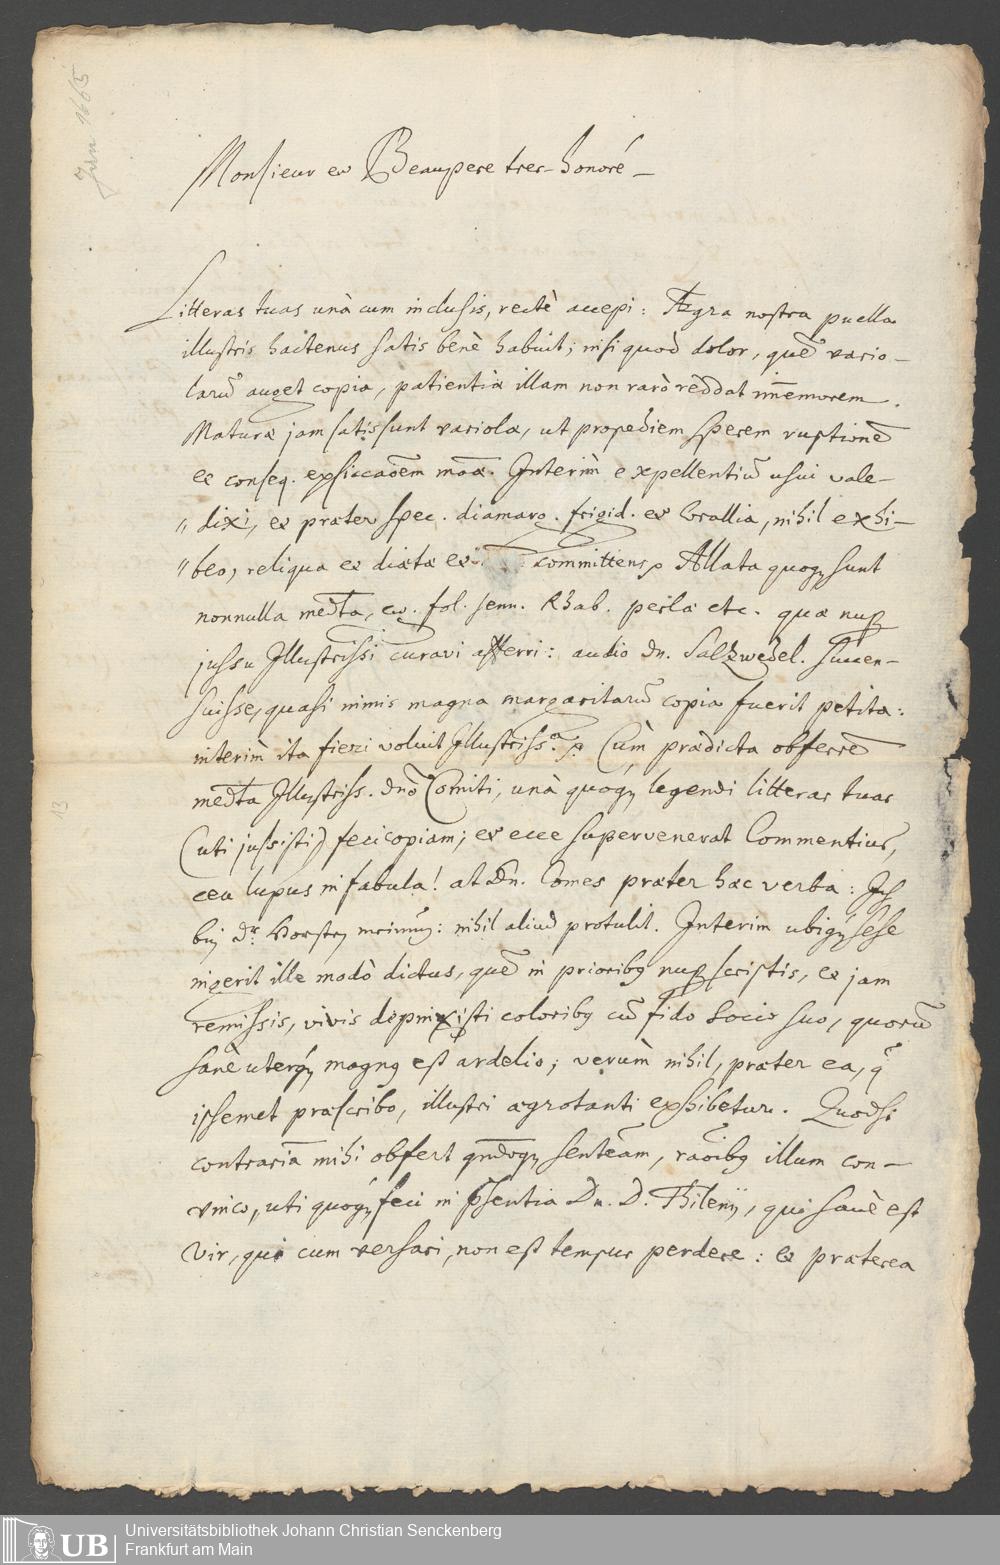 Jun 1665
Monsieur et Beaupere tres-honoré
Litteras tuas unà cum inclusis, rectè accepi: Ægra nostra puella
illustris hactenus satis benè habuit; nisi quod dolor, quē vario-
larū auget copia, patientiæ illam non rarò reddat im̄emorem.
Maturæ jam satis sunt variolæ, ut propediem sperem ruptionē
et conseq. exsiccaōem Interim expellentiū usui vale-
" dixi, et præter spec. diamarg. frigid. et Corallia, nihil exhi-
" beo, reliqua et diætæ et committens. Allata quoqȝ sunt
nonnulla fol. senn. Rhab. perlæ etc. quæ nuper
jussu Illustrissi curavi afferri: audio dn. Saltzwedel. succen-
suisse, quasi nimis magna margaritarū copia fuerit petita:
interim ita fieri voluit Illustriss.ᵃ Cùm prædicta obferrē
Illustriss. dnō Comiti, unà quoqȝ legendi litteras tuas
(uti jussisti) feci copiam; et ecce supervenerat Commentius,
ceu lupus in fabula! at Dn. Comes præter hæc verba:
Dr. Horsten nihil aliud protulit. Interim ubiqȝ sese
ingerit ille modò dictus, quē in prioribȝ nuper scriptis, et jam
remissis, vivis depinxisti coloribȝ cū fido socio suo, quorū
sanè uterqȝ magnȝ est ardelio; verùm nihil, præter ea, q̄
ipsemet præscribo, illustri ægrotanti exhibetur. Quodsi
contrariā mihi obfert senteām, raōibȝ illum con-
vinco, uti quoqȝ feci in p̄sentia Dn. D. Thilenij, qui sanè est
Vir, qui cum versari, non est tempus perdere: et præterea
13
UB
Universitätsbibliothek Johann Christian Senckenberg
Frankfurt am Main